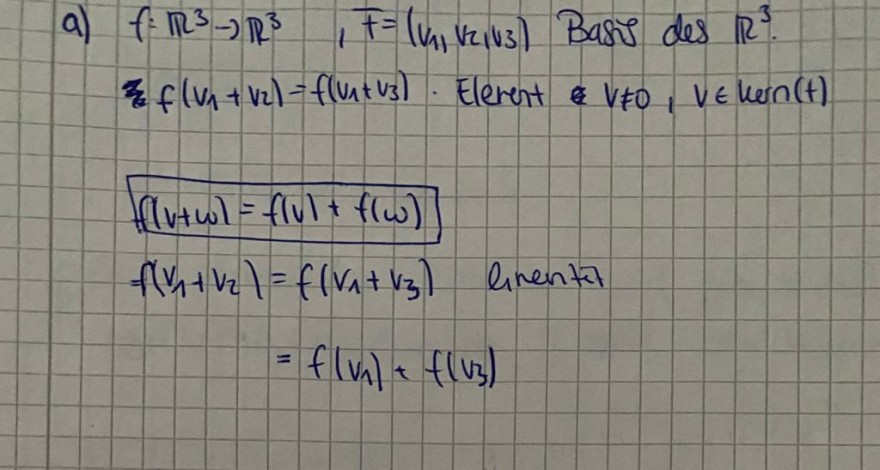 a) f: ℝ³ → ℝ³ , F = (v1, v2, v3) Basis des ℝ³.
f(v1 + v2) = f(v1 + v3) . Elerent v≠0 , v ∈ kern(f)
f(v+w) = f(v) + f(w)
f(v1 + v2) = f(v1 + v3)
= f(v1) + f(v3)